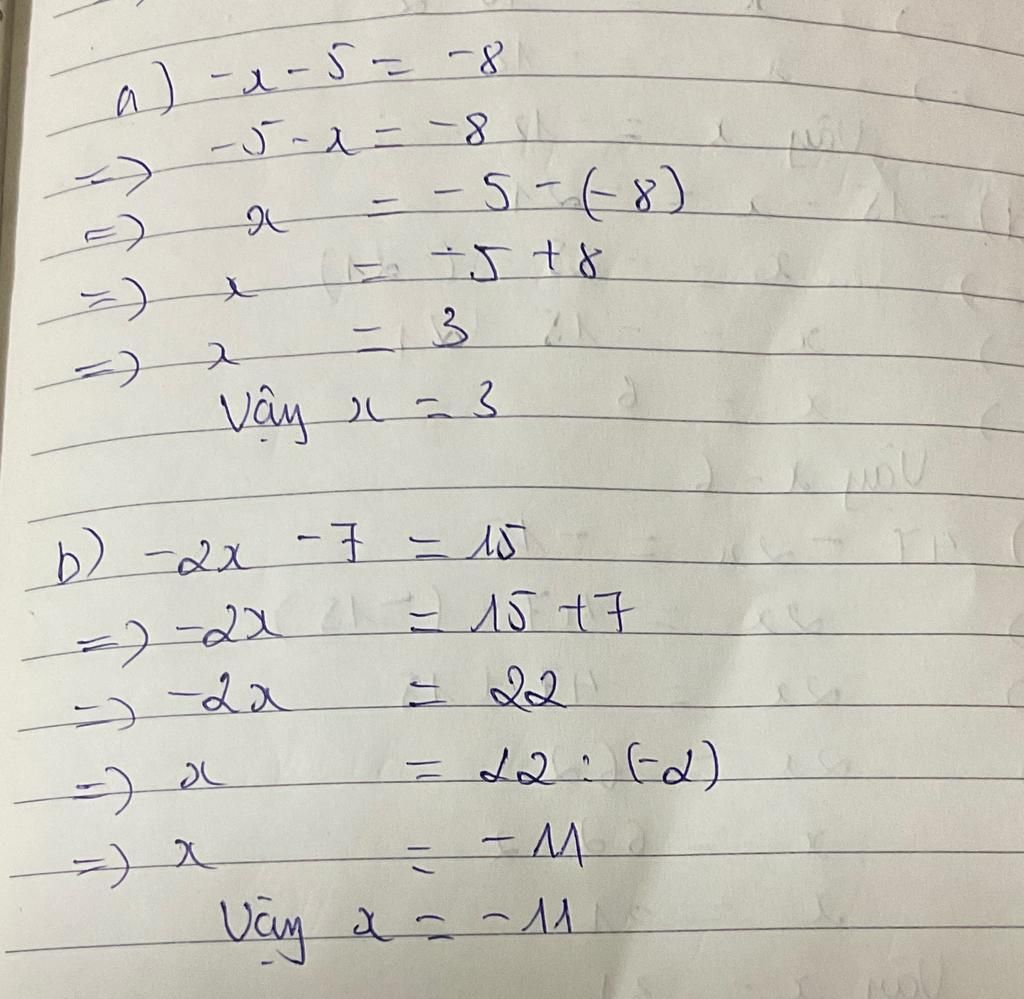 a) -x - 5 = -8
=> -5 - x = -8
=> x = -5 - (-8)
=> x = -5 + 8
=> x = 3
Vậy x = 3
b) -2x - 7 = 15
=> -2x = 15 + 7
=> -2x = 22
=> x = 22 : (-2)
=> x = -11
Vậy x = -11